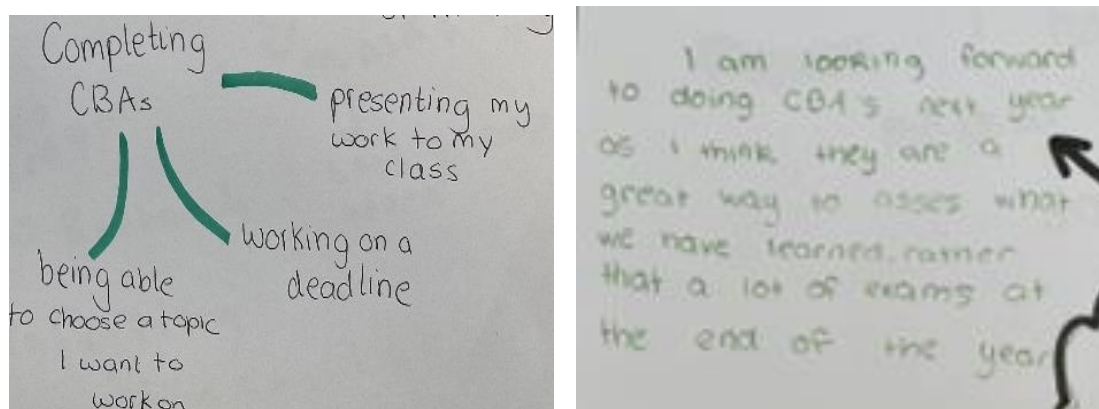 Completing
CBAs
presenting my
work to my
class
working on a
deadline
being able
to choose a topic
I want to
work on
I am looking forward
to doing CBA's next year
as I think they are a
great way to asses what
we have learned, rather
that a lot of exams at
the end of the year